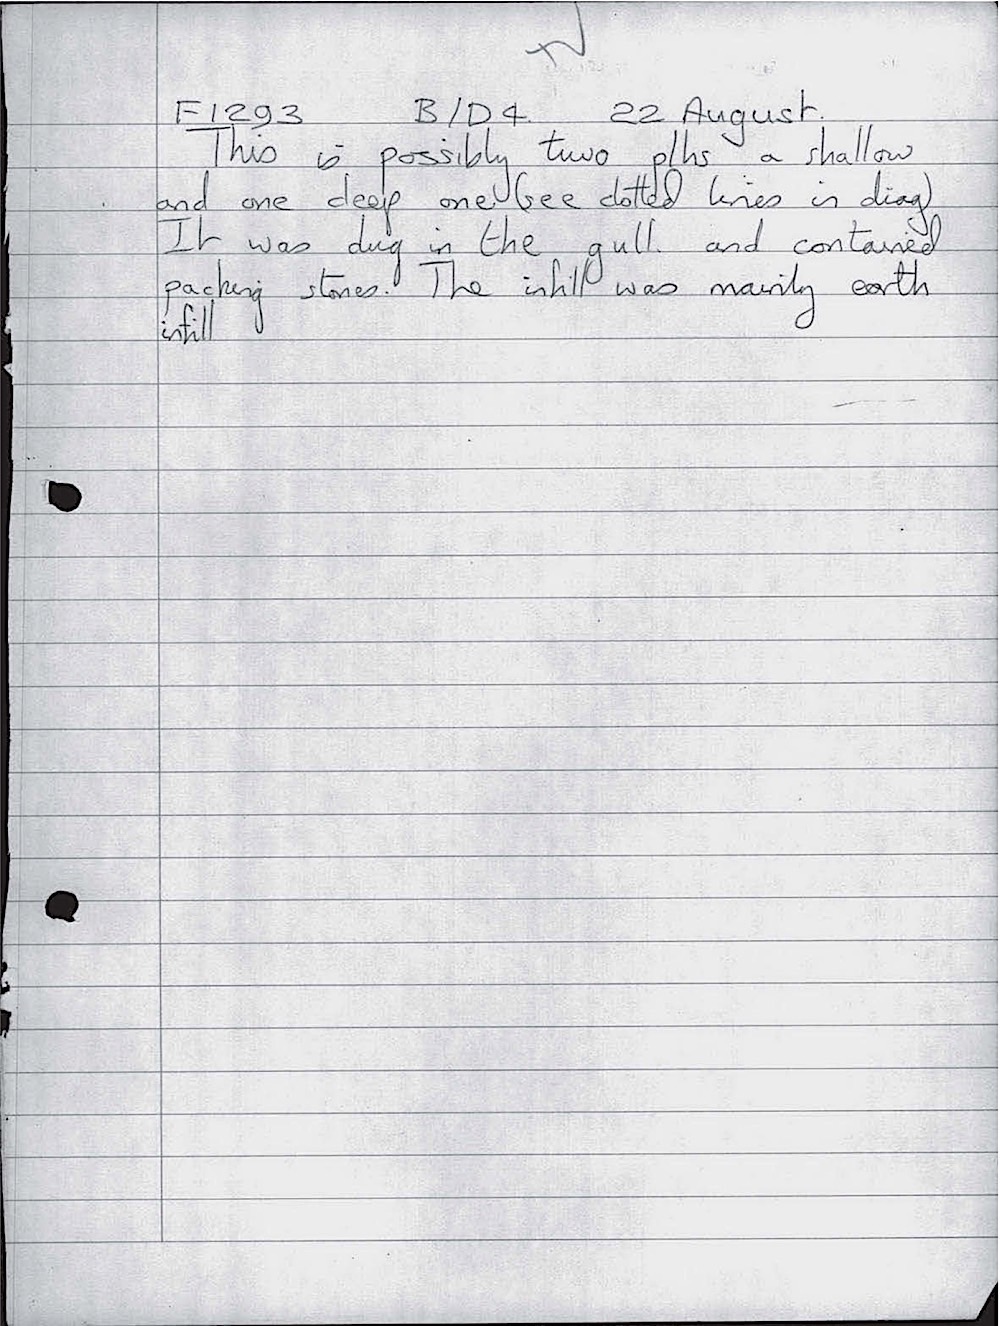 F1293 B/D4 22 August.
This is possibly two plhs a shallow
and one deep one (see dotted lines in diag)
It was dug in the gull. and contained
packing stones. The infill was mainly earth
infill